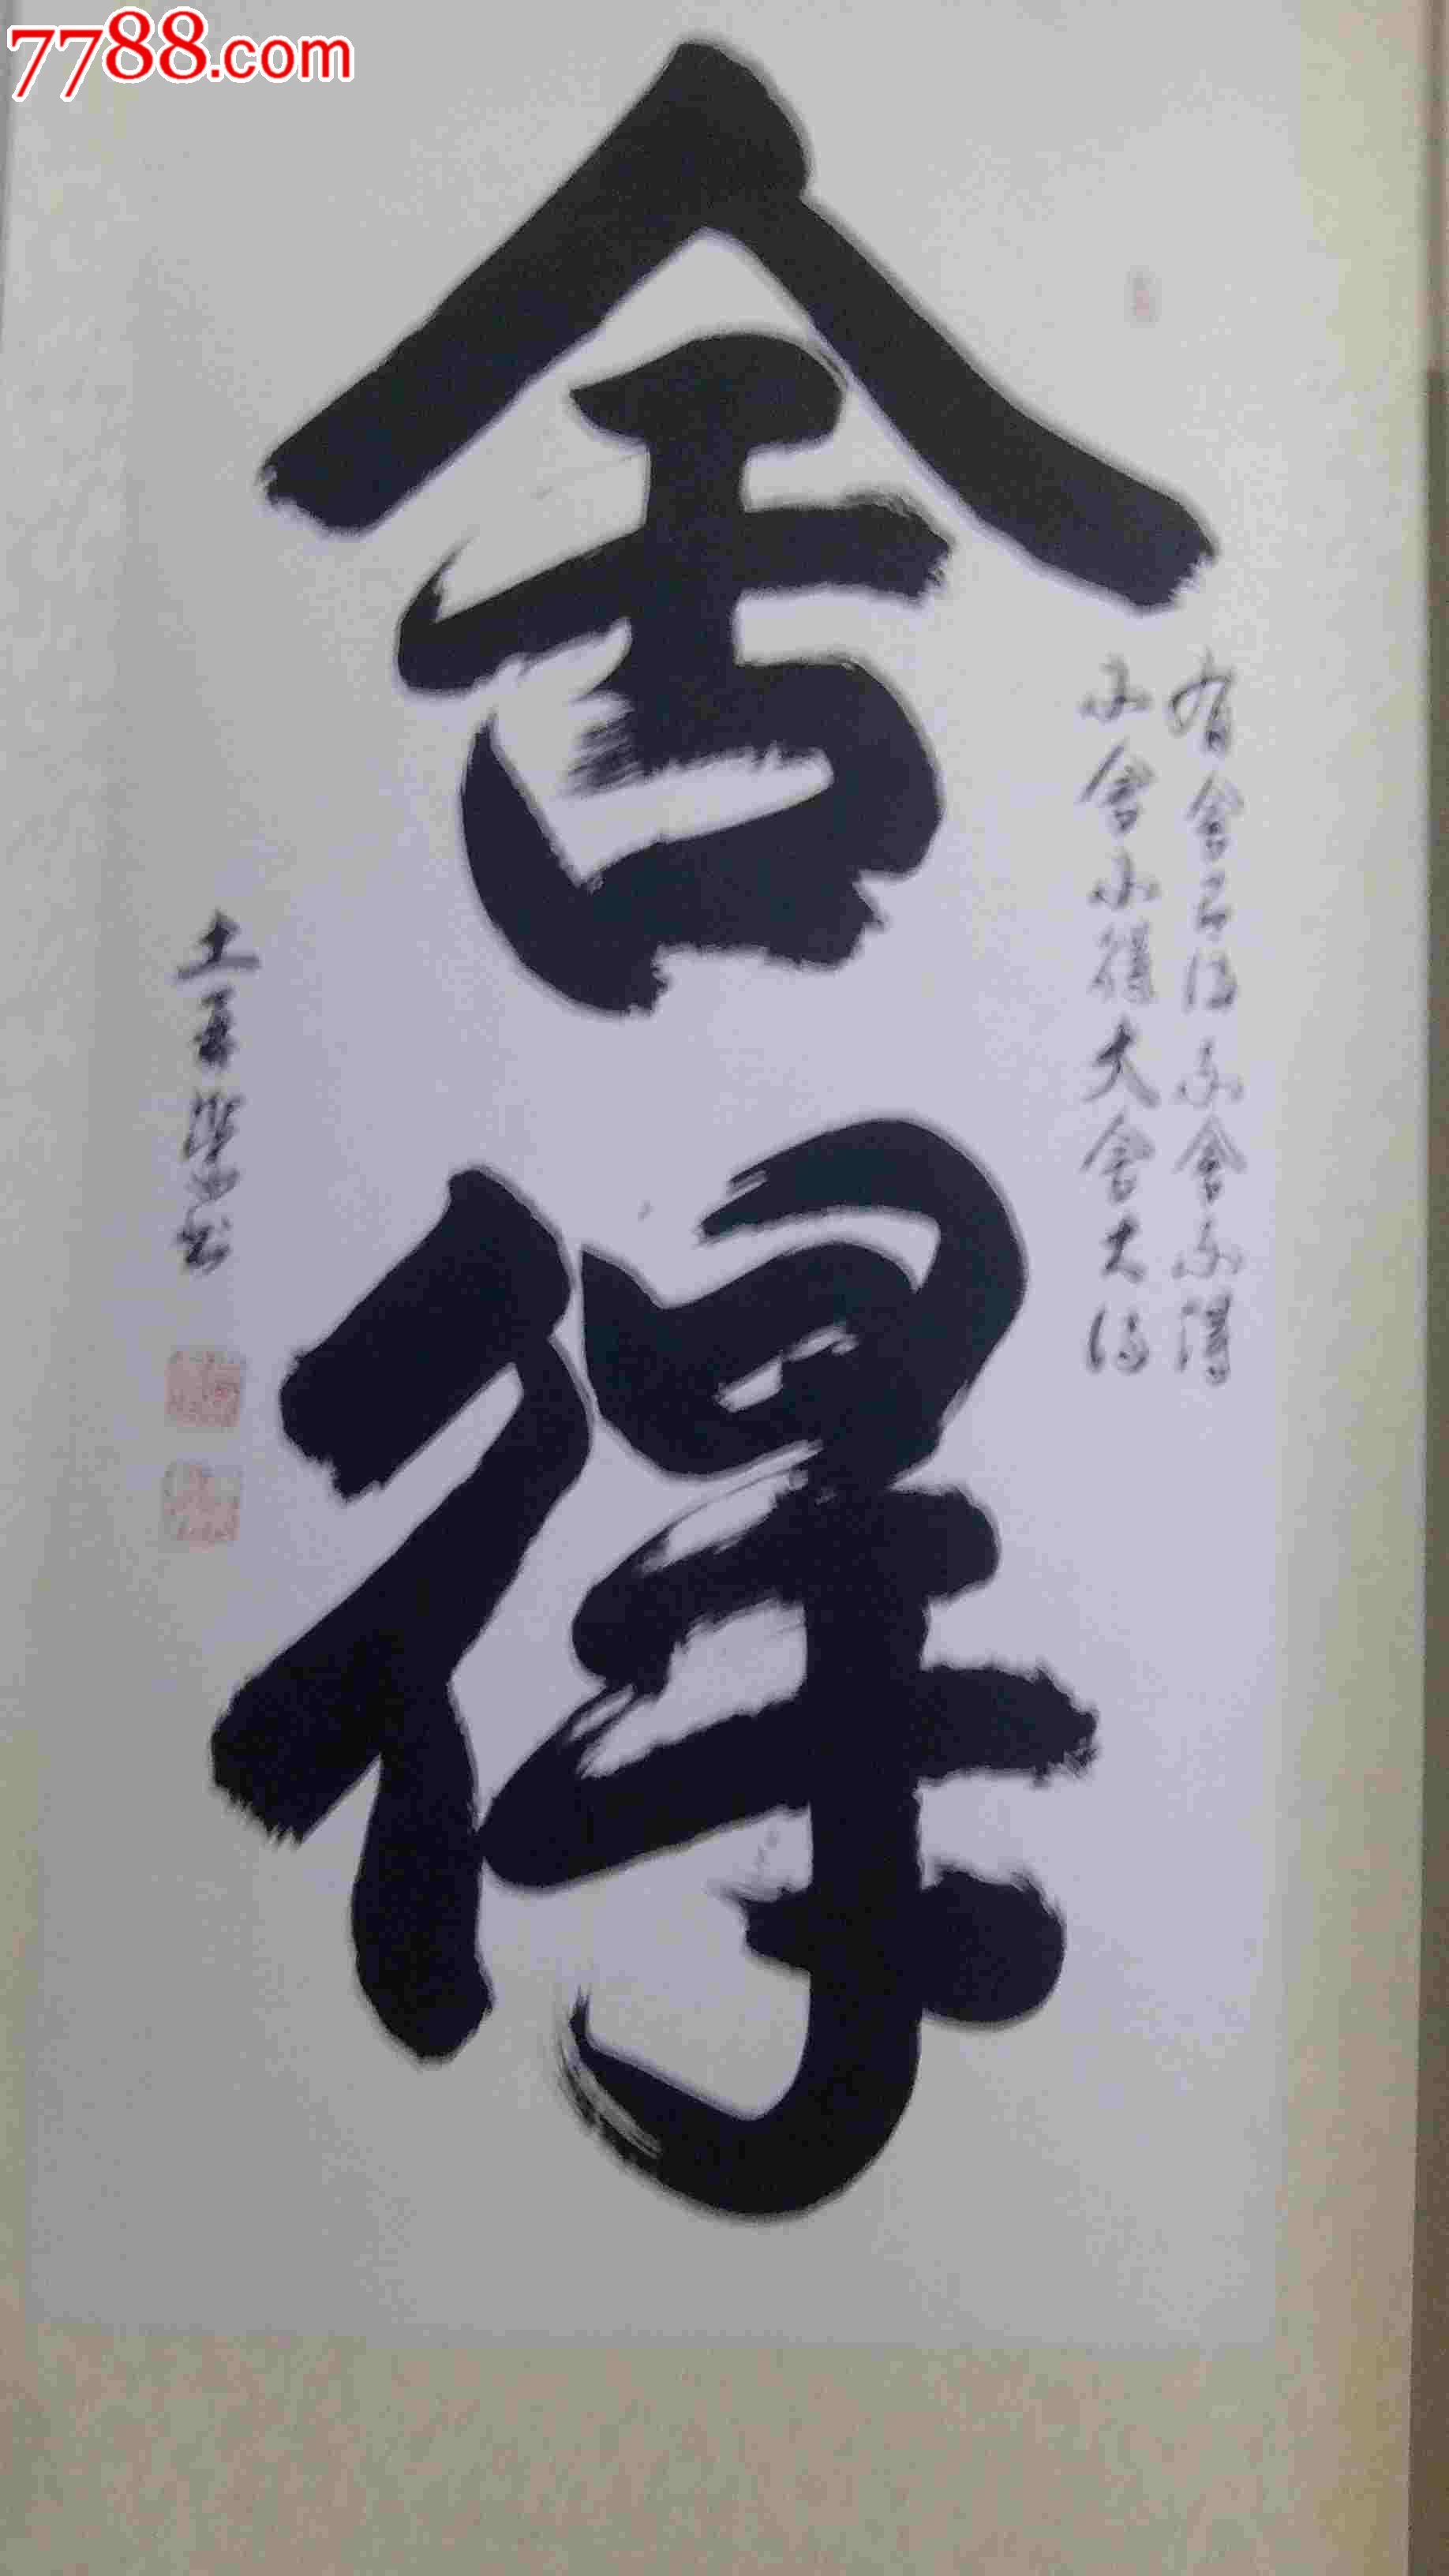 7788.com
舍得
有舍有得不舍不得
小舍小得大舍大得